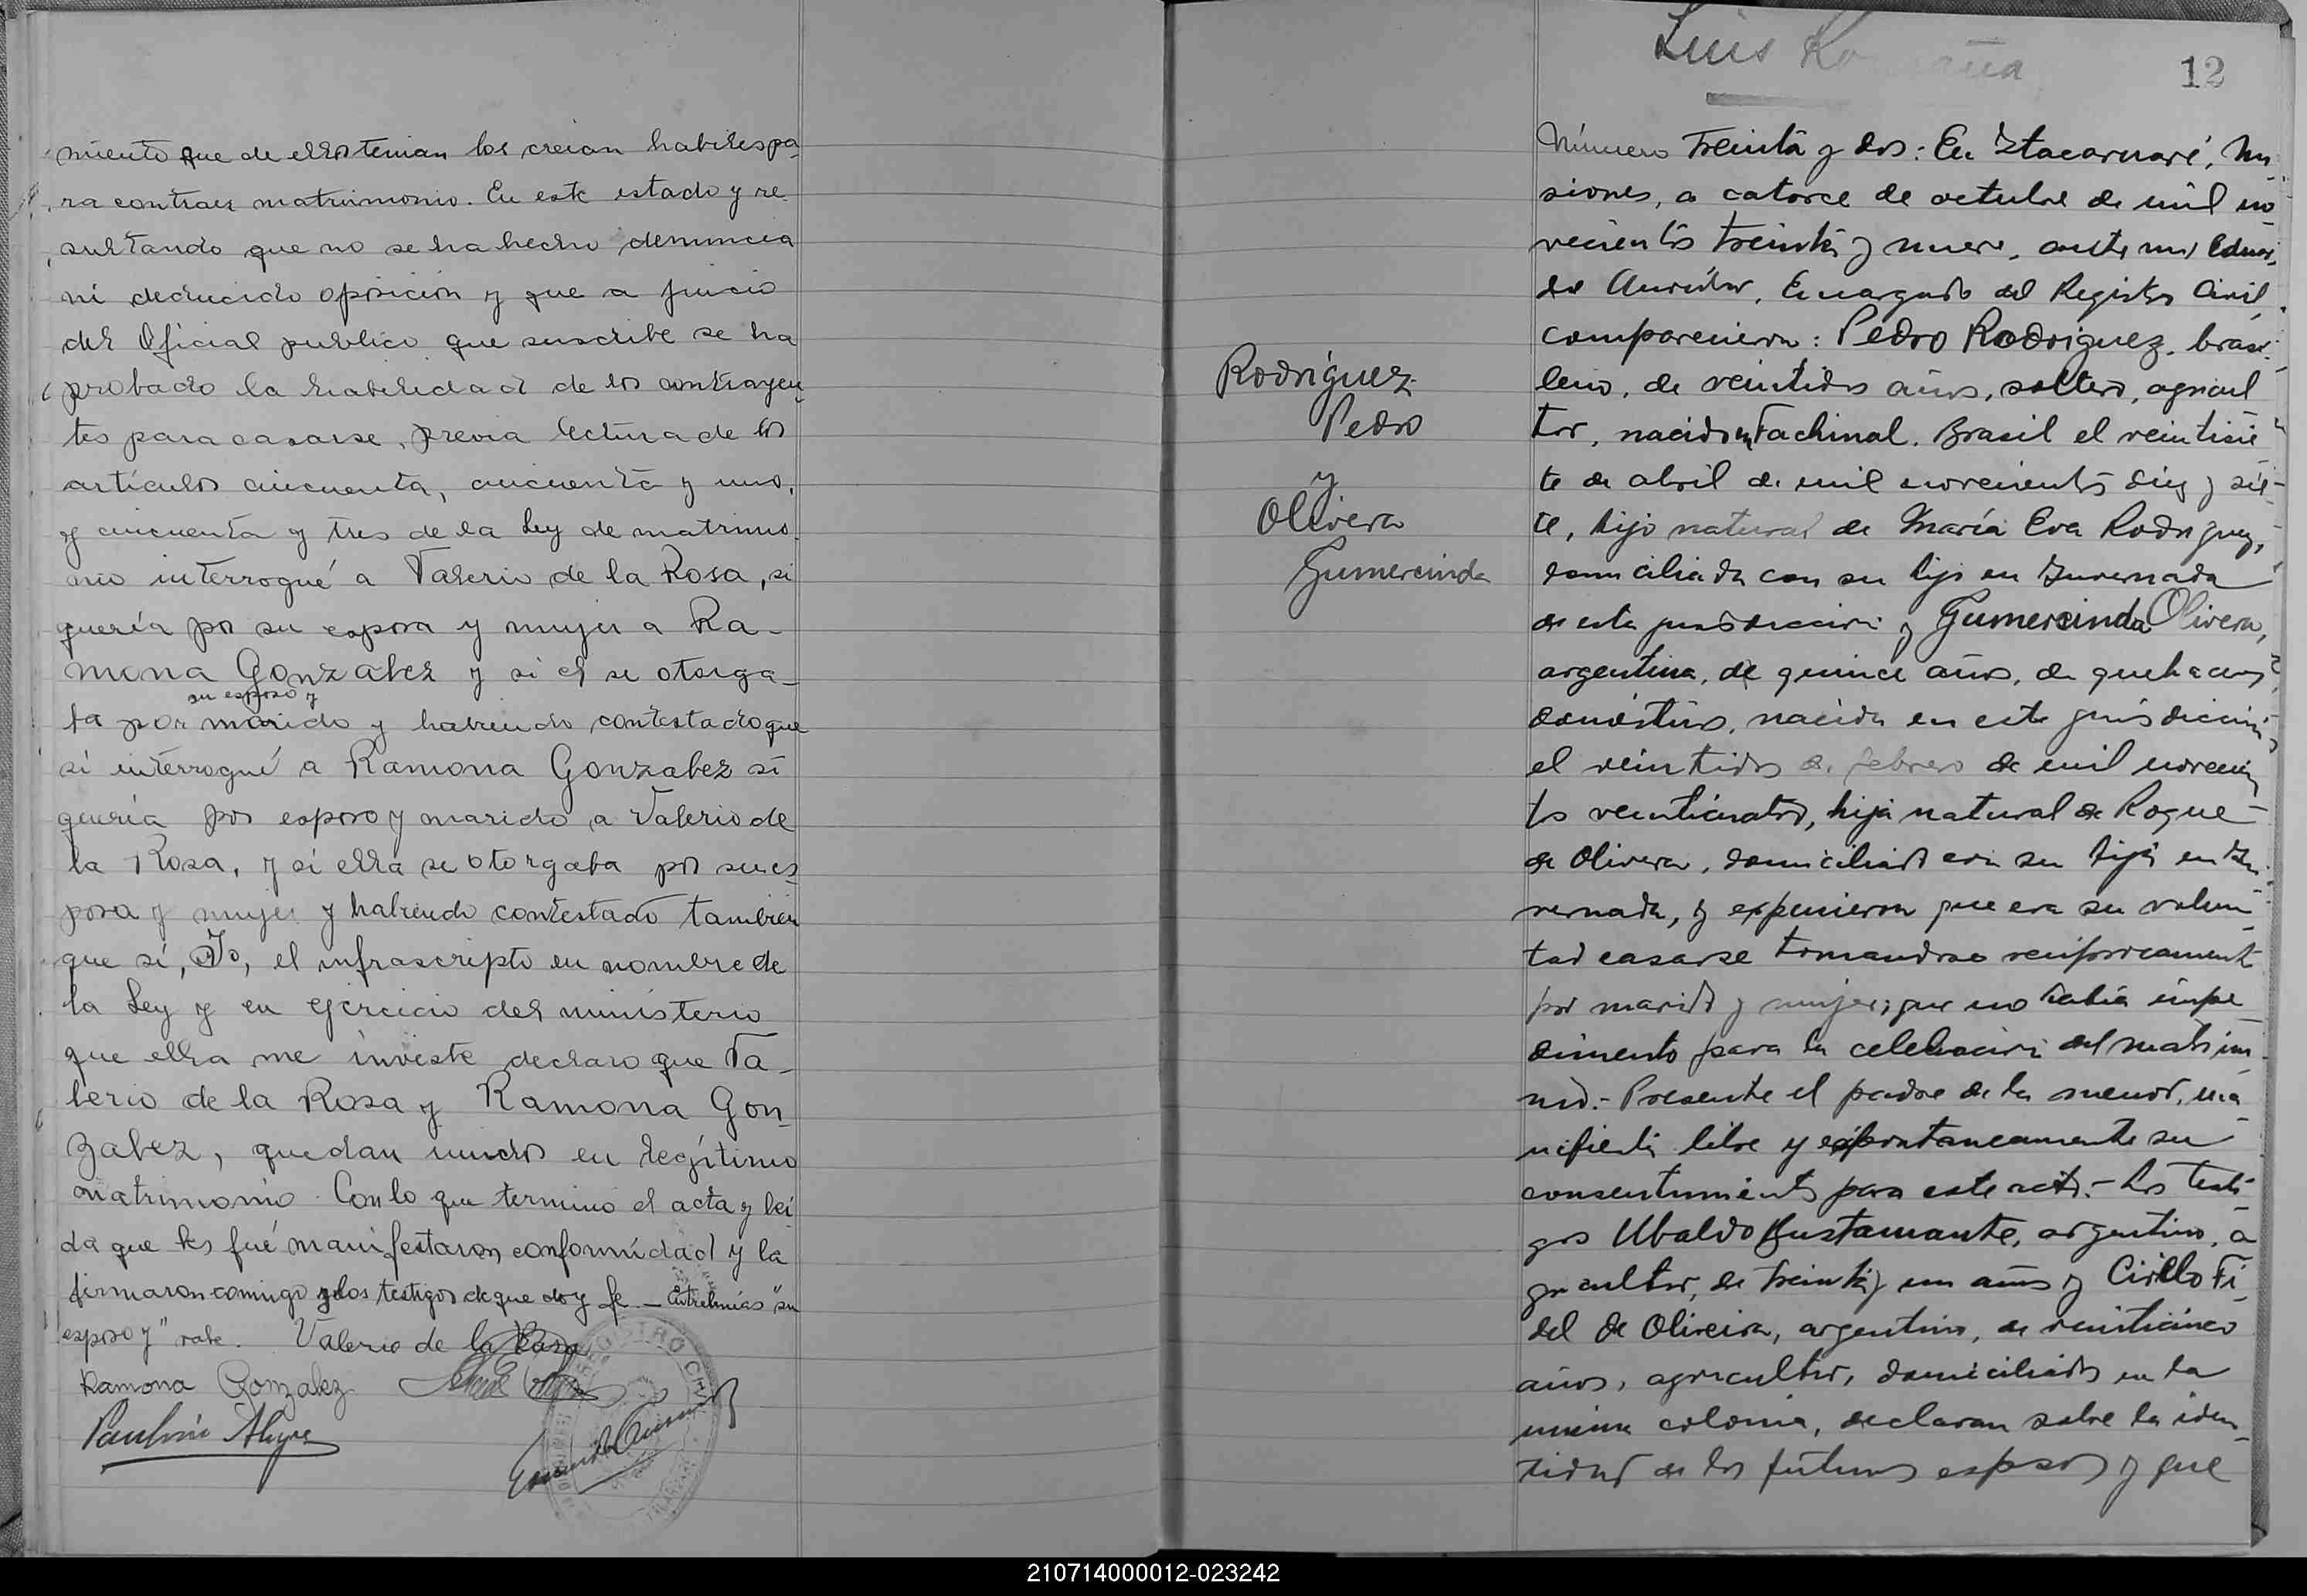 miento que de ellos tenian los creian habiles pa-
ra contraer matrimonio. En este estado y re-
sultando que no se ha hecho denuncia
ni deducido oposición y que a juicio
del Oficial publico que suscribe se ha
probado la habilidad de los contrayen-
tes para casarse, previa lectura de los
artículos cincuenta, cincuenta y uno,
y cincuenta y tres de la Ley de matrimo-
nio interrogué a Valerio de la Rosa, si
quería por su esposa y mujer a Ra-
mona Gonzalez y si el se otorga-
su esposo y
ba por marido y habiendo contestado que
sí interrogué a Ramona Gonzalez si
quería por esposo y marido a Valerio de
la Rosa, y si ella se otorgaba por su es-
posa y mujer y habiendo contestado tambien
que sí, Yo, el infrascripto en nombre de
la Ley y en ejercicio del ministerio
que ella me inviste declaro que Va-
lerio de la Rosa y Ramona Gon-
zalez, quedan unidos en legítimo
matrimonio. Con lo que termino el acta y lei-
da que les fué manifestaron conformidad y la
firmaron conmigo y los testigos de que doy fe. — Entrelineas "su
esposo y" vale. Valerio de la Rosa
Ramona Gonzalez
REGISTRO CIVIL
Luis
12
Rodríguez
Pedro
y
Olivera
Gumercinda
Número Treinta y dos: En Itacaruaré, Mi-
siones, a catorce de octubre de mil no-
vecientos treinta y nueve, ante mi, Eduar-
do, Encargado del Registro Civil,
comparecieron: Pedro Rodriguez, brasi-
leño, de veintidos años, soltero, agricul-
tor, nacido en Fachinal, Brasil el veintisie-
te de abril de mil novecientos diez y sie-
te, hijo natural de María Eva Rodriguez,
domiciliada con su hijo en Invernada
de esta jurisdiccion y Gumercinda Olivera,
argentina, de quince años, de quehaceres
domésticos, nacida en esta jurisdicción
el veintidos de febrero de mil novecien-
tos veinticuatro, hija natural de Roque
de Olivera, domiciliado con su hija en In-
vernada, y expusieron que era su volun-
tad casarse tomandose reciprocamente
por marido y mujer; que no habia impe-
dimento para la celebracion del matrimo-
nio.- Presente el padre de la menor, ma-
nifiesta libre y espontaneamente su
consentimiento para este acto.- Los testi-
gos Ubaldo Bustamante, argentino, a-
gricultor, de treinta y un años y Cirilo Fi-
del de Oliveira, argentino, de veinticinco
años, agricultor, domiciliados en la
misma colonia, declaran sobre la iden-
tidad de los futuros esposos y que
210714000012-023242